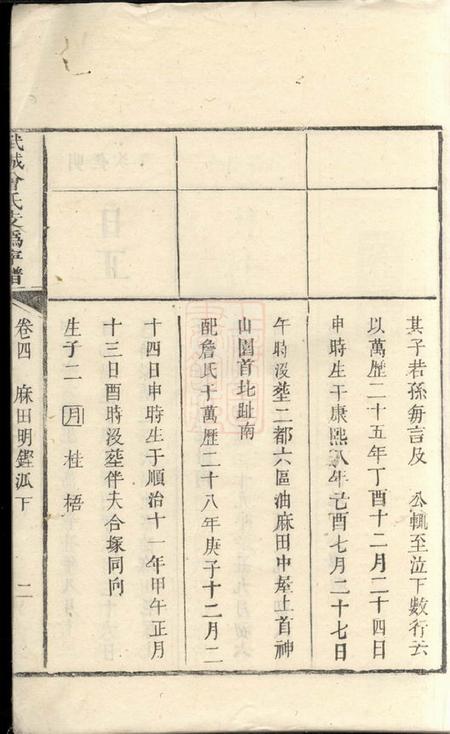 其子若孫每言及 公輒至泣下數行云
以萬歷二十五年丁酉十二月二十四日
申時生于康熙八年己酉七月二十七日
午時沒塟二都六區油麻田中屋上首神
山園首北趾南
配詹氏于萬歷二十八年庚子十二月二
十四日申時生于順治十一年甲午正月
十三日酉時沒塟伴夫合塚同向
生子二 月桂 梧
武城曾氏支爲寧譜
卷四 麻田明鏗泒下 二